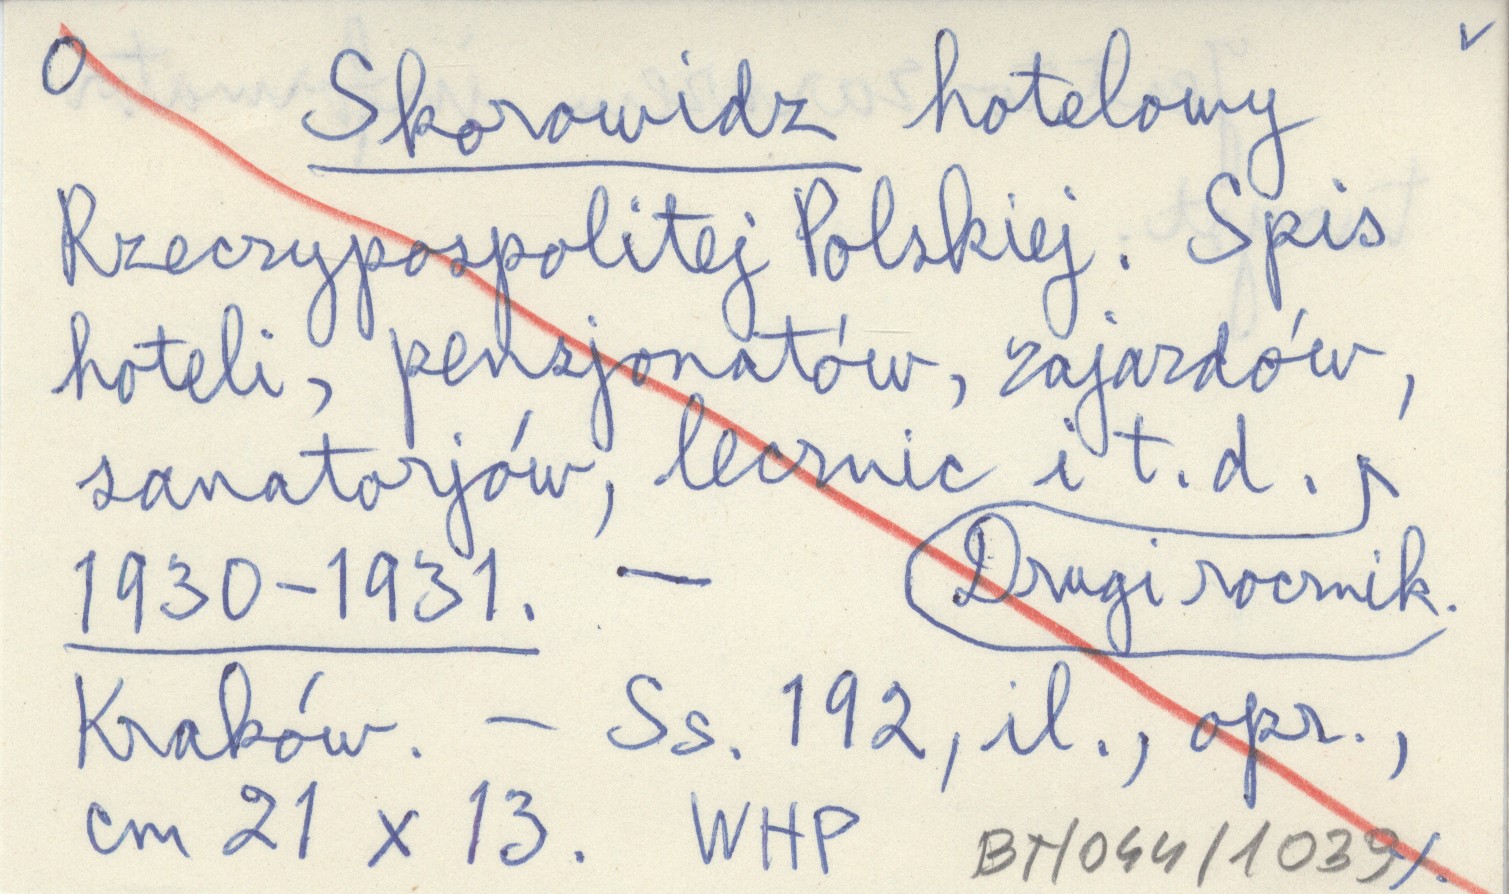 O Skorowidz hotelowy
Rzeczypospolitej Polskiej. Spis
hoteli, pensjonatów, zajazdów,
sanatorjów, lecznic i t.d.
1930-1931. — Drugi rocznik.
Kraków. — Ss. 192, il., opr.,
cm 21 x 13. WHP BT/044/1039/.